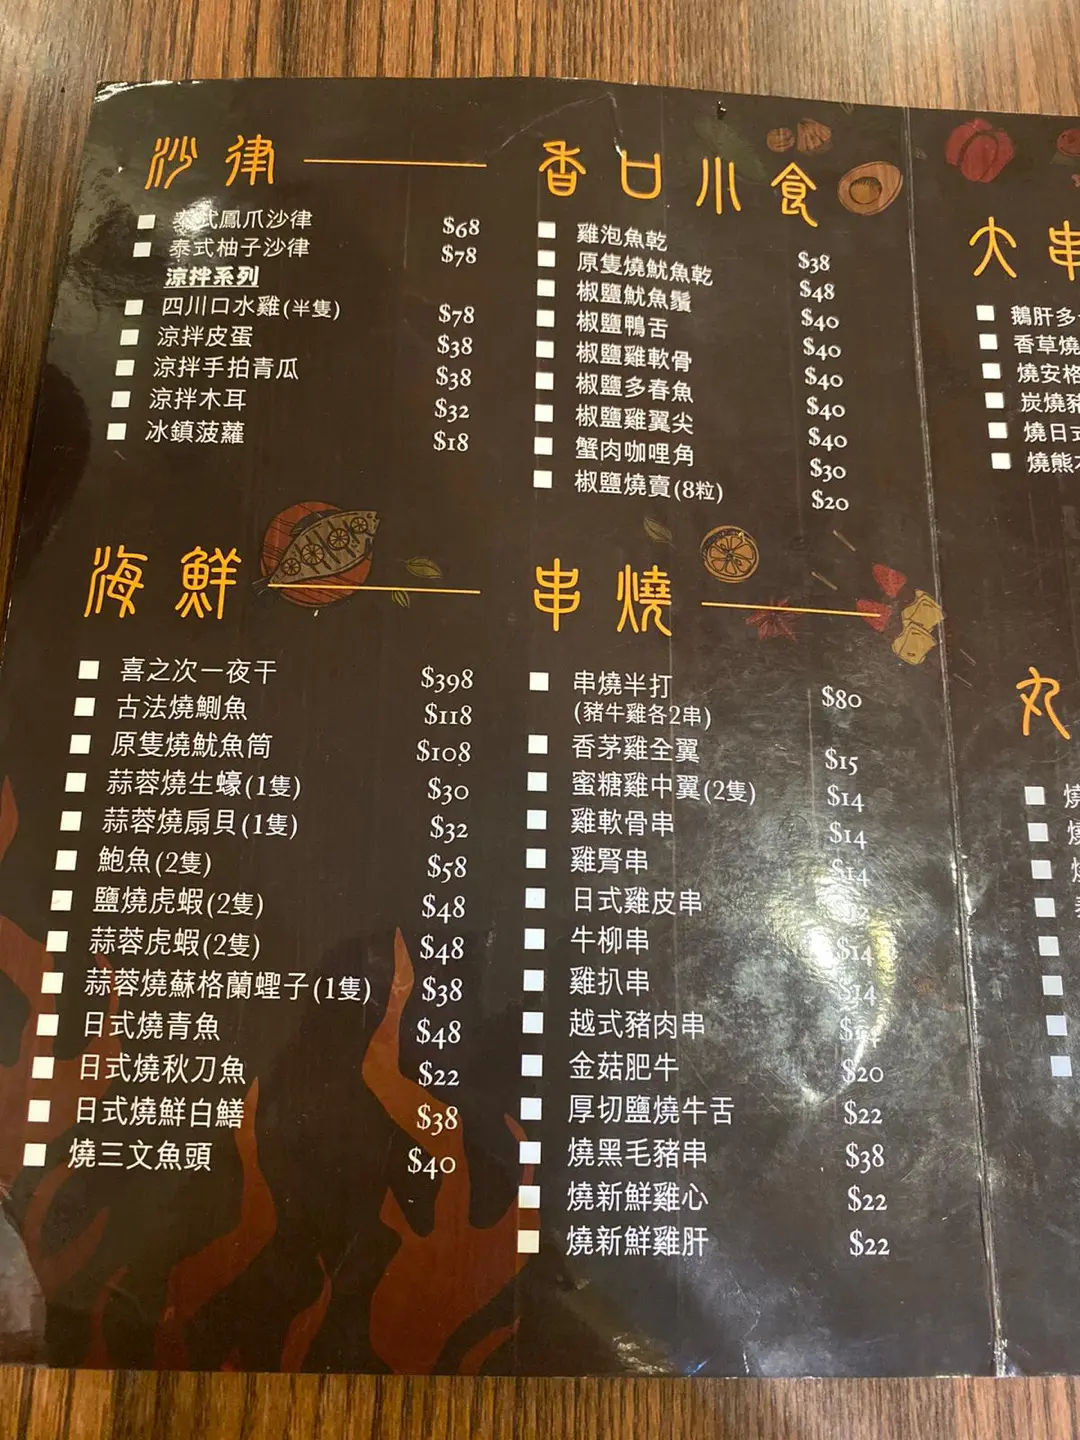 沙律
泰式鳳爪沙律 $68
泰式柚子沙律 $78
涼拌系列
四川口水雞(半隻) $78
涼拌皮蛋 $38
涼拌手拍青瓜 $38
涼拌木耳 $32
冰鎮菠蘿 $18
香口小食
雞泡魚乾 $38
原隻燒魷魚乾 $48
椒鹽魷魚鬚 $40
椒鹽鴨舌 $40
椒鹽雞軟骨 $40
椒鹽多春魚 $40
椒鹽雞翼尖 $40
蟹肉咖哩角 $30
椒鹽燒賣(8粒) $20
海鮮
喜之次一夜干 $398
古法燒鰂魚 $118
原隻燒魷魚筒 $108
蒜蓉燒生蠔(1隻) $30
蒜蓉燒扇貝(1隻) $32
鮑魚(2隻) $58
鹽燒虎蝦(2隻) $48
蒜蓉虎蝦(2隻) $48
蒜蓉燒蘇格蘭蟶子(1隻) $38
日式燒青魚 $48
日式燒秋刀魚 $22
日式燒鮮白鱔 $38
燒三文魚頭 $40
串燒
串燒半打 $80
(豬牛雞各2串)
香茅雞全翼 $15
蜜糖雞中翼(2隻) $14
雞軟骨串 $14
雞腎串 $14
日式雞皮串 $12
牛柳串 $14
雞扒串 $14
越式豬肉串 $14
金菇肥牛 $20
厚切鹽燒牛舌 $22
燒黑毛豬串 $38
燒新鮮雞心 $22
燒新鮮雞肝 $22
大串
鵝肝多
香草燒
燒安格
炭燒豬
燒日式
燒熊本
丸
燒
燒
燒